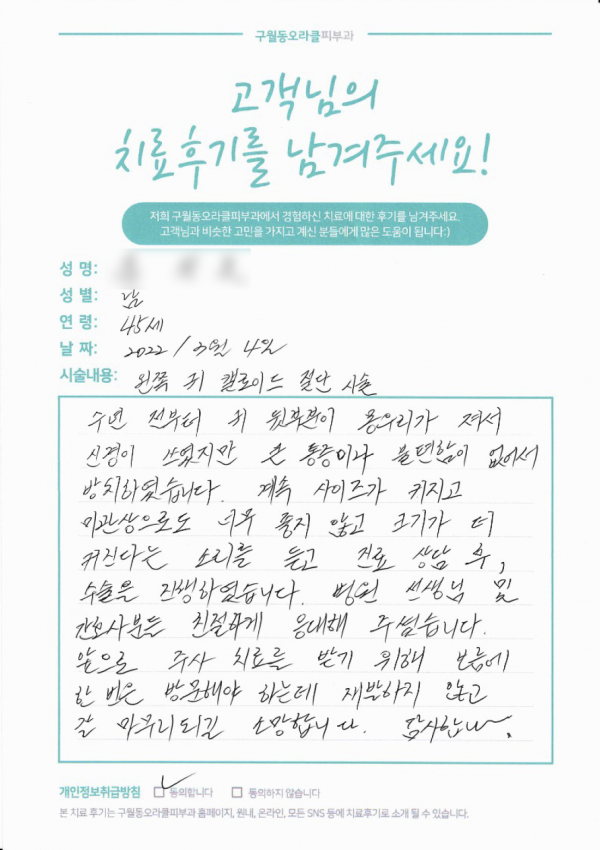 구월동오라클피부과
고객님의
치료후기를 남겨주세요!
저희 구월동오라클피부과에서 경험하신 치료에 대한 후기를 남겨주세요.
고객님과 비슷한 고민을 가지고 계신 분들에게 많은 도움이 됩니다:)
성 명:
성 별: 남
연 령: 45세
날 짜: 2022 / 3월 4일
시술내용: 왼쪽 귀 켈로이드 절단 시술
수년 전부터 귀 뒷부분이 몽우리가 져서
신경이 쓰였지만 큰 통증이나 불편함이 없어서
방치하였습니다. 계속 사이즈가 커지고
미관상으로도 너무 좋지 않고 크기가 더
커진다는 소리를 듣고 진료 상담 후,
수술을 진행하였습니다. 병원 선생님 및
간호사분들 친절하게 응대해 주셨습니다.
앞으로 주사 치료를 받기 위해 보름에
한 번은 방문해야 하는데 재발하지 않고
잘 마무리되길 소망합니다. 감사합니다.
개인정보취급방침 동의합니다 동의하지 않습니다
본 치료 후기는 구월동오라클피부과 홈페이지, 원내, 온라인, 모든 SNS 등에 치료후기로 소개 될 수 있습니다.